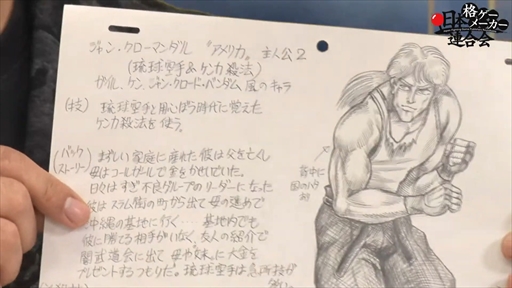 格ゲー
日本 メーカー
連合会
ジャン・クローマンダル "アメリカ" 主人公2
(琉球空手&ケンカ殺法)
ガイル、ケン、ジャン・クロード・バンダム 風のキャラ
(技) 琉球空手と用心ぼう時代に覚えた
ケンカ殺法を使う。
(バックストーリー) まずしい家庭に産れた彼は父を亡くし
母はコールガールで金をかせいでいた。
日々はすぎ不良グループのリーダーになった
彼はスラム街の町から出て母の進めで
沖縄の基地に行く…基地内でも
彼に勝てる相手がいなく友人の紹介で
闇武道会に出て母や妹に大金を
プレゼントするつもりだ。琉球空手は急所技が
背中に